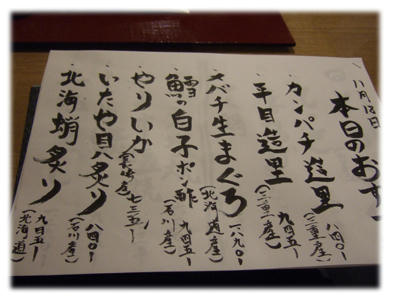 十一月十三日
本日のおす
・カンパチ造里 八四〇ー
(三重産)
・平目造里 九四五ー
(三重産)
・メバチ生まぐろ 一八九〇ー
(北海道産)
・鱈の白子ポン酢 九四五ー
(石川産)
・やりいか 七三五ー
・いたや貝炙り 八四〇ー
(石川産)
・北海蛸炙り 九四五ー
(北海道)